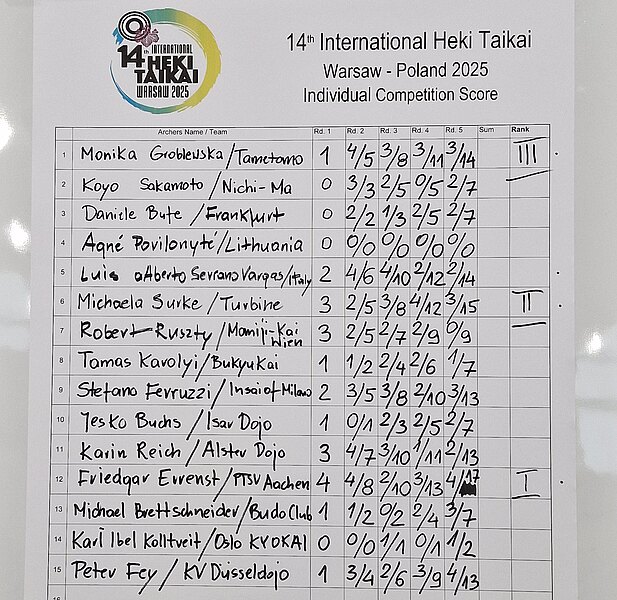 14th INTERNATIONAL
HEKI
TAIKAI
WARSAW 2025
14th International Heki Taikai
Warsaw - Poland 2025
Individual Competition Score
Archers Name / Team Rd. 1 Rd. 2 Rd. 3 Rd. 4 Rd. 5 Sum Rank
1 Monika Groblewska/Tametomo 1 4/5 3/8 3/11 3/14 III
2 Koyo Sakamoto / Nichi-Ma 0 3/3 2/5 0/5 2/7
3 Daniele Bute / Frankfurt 0 2/2 1/3 2/5 2/7
4 Agné Povilonyté/Lithuania 0 0/0 0/0 0/0 0/0
5 Luis Alberto Serrano Vargas/Italy 2 4/6 4/10 2/12 2/14
6 Michaela Surke / Turbine 3 2/5 3/8 4/12 3/15 II
7 Robert Ruszty / Momiji-Kai Wien 3 2/5 2/7 2/9 0/9
8 Tamas Karolyi/BukyuKai 1 1/2 2/4 2/6 1/7
9 Stefano Ferruzzi / Insai of Milano 2 3/5 3/8 2/10 3/13
10 Jesko Buchs / Isar Dojo 1 0/1 2/3 2/5 2/7
11 Karin Reich / Alster Dojo 3 4/7 3/10 1/11 2/13
12 Friedgar Errenst/PTSV Aachen 4 4/8 2/10 3/13 4/17 I
13 Michael Brettschneider/Budo Club 1 1/2 0/2 2/4 3/7
14 Karl Ibel Kolltveit/Oslo KYOKAI 0 0/0 1/1 0/1 1/2
15 Peter Fey / KV Düsseldojo 1 3/4 2/6 3/9 4/13